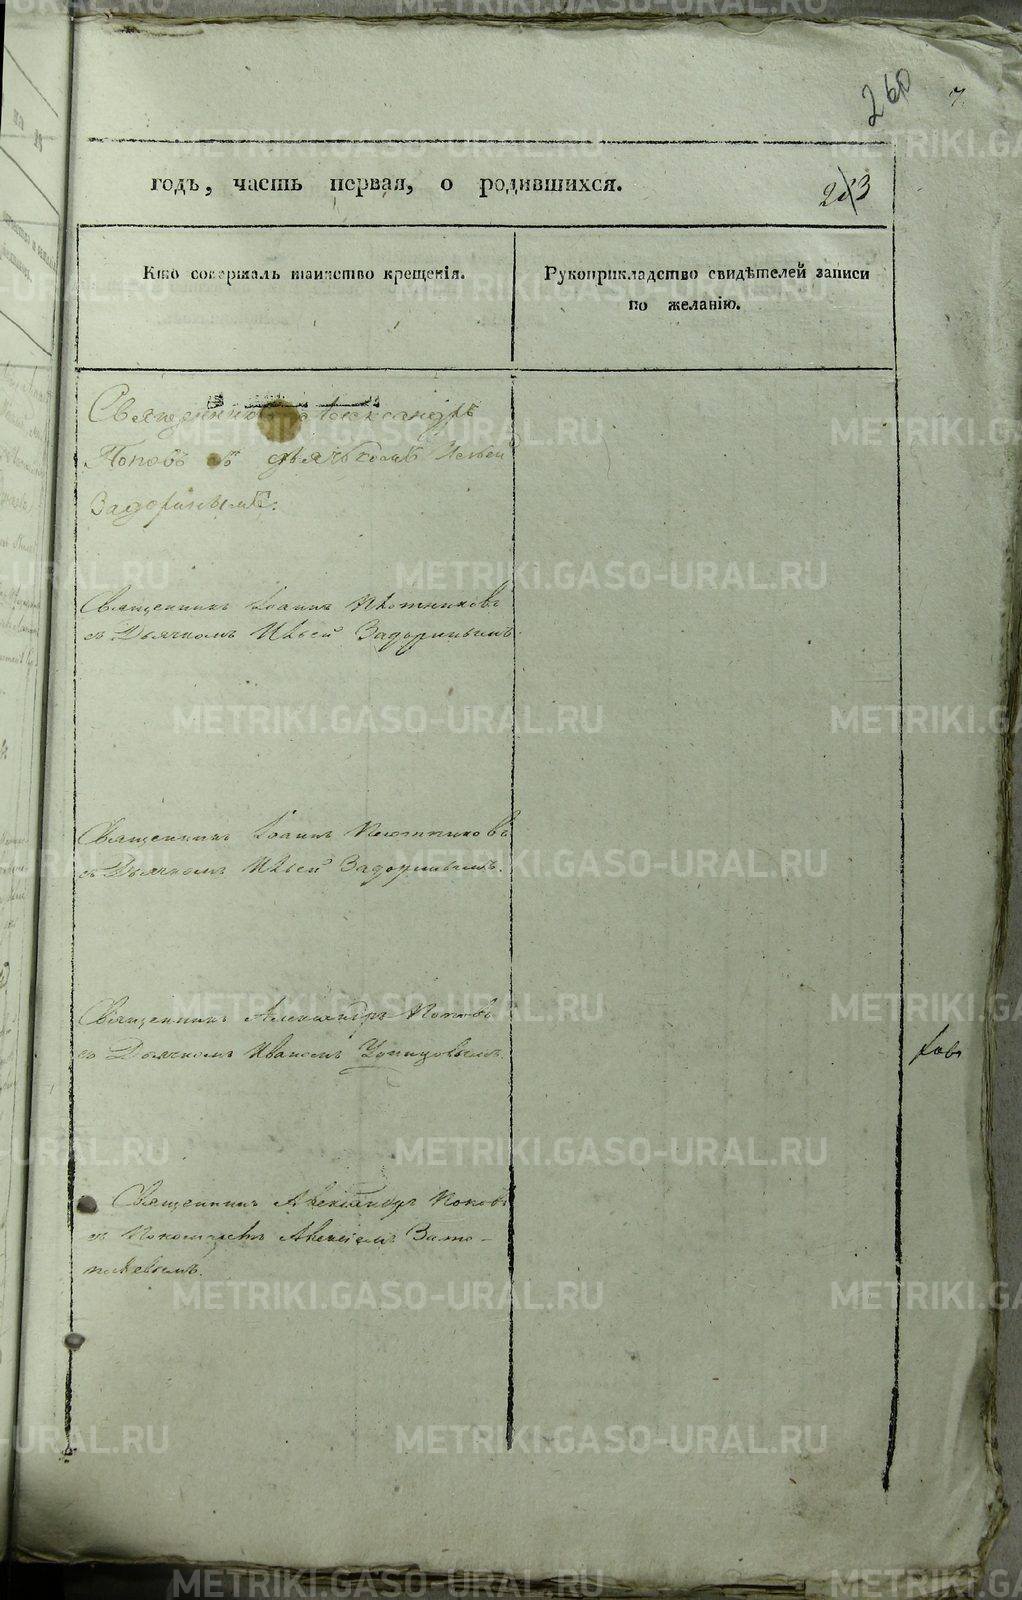 260
7
годъ, часть первая, о родившихся.
233
Кто совершалъ таинство крещенія.
Рукоприкладство свидѣтелей записи
по желанію.
Священникъ Александръ
Поповъ съ дьячькомъ Ильей
Задоринымъ.
Священникъ Іоаннъ Плотниковъ
съ Дьячкомъ Ильей Задоринымъ.
Священникъ Іоаннъ Плотниковъ
съ Дьячкомъ Ильей Задоринымъ.
Священникъ Александръ Поповъ
съ Дьячкомъ Иваномъ
Священникъ Александръ Поповъ
съ Пономаремъ Алексіемъ
METRIKI.GASO-URAL.RU